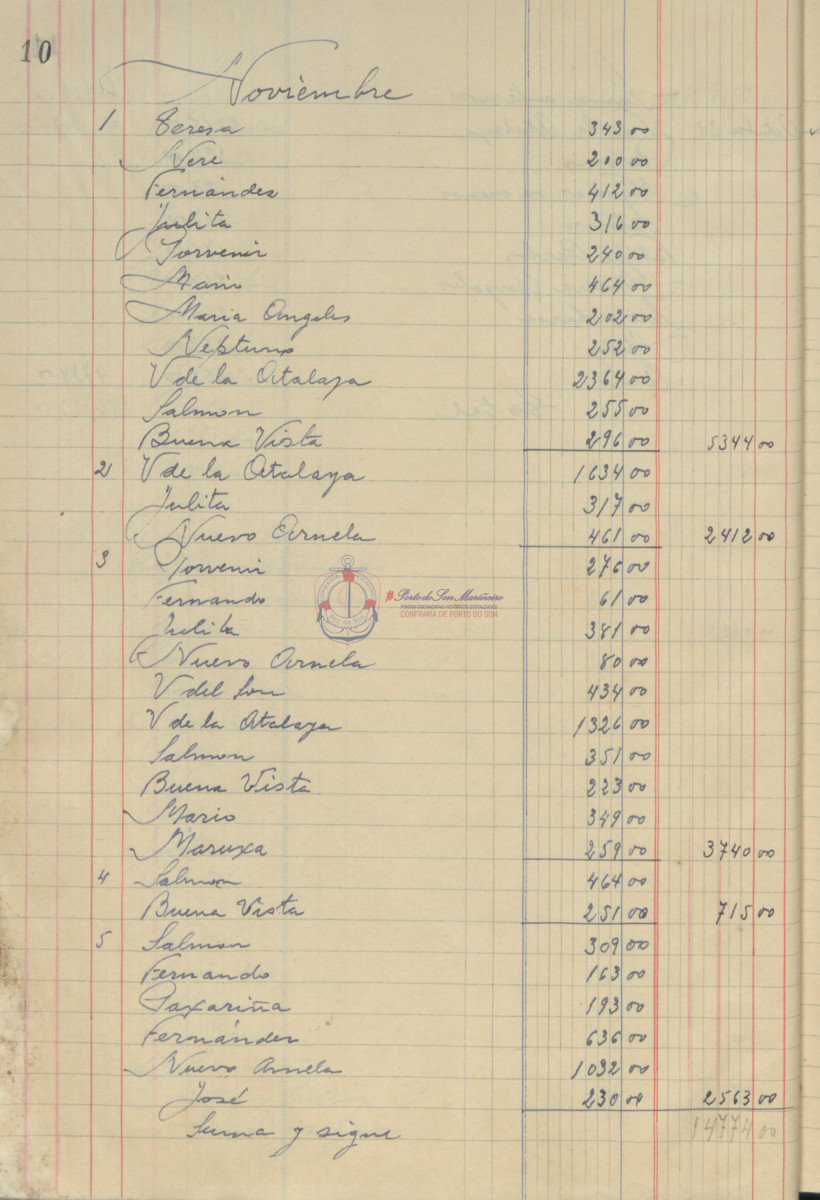 10
Noviembre
1 Teresa 343 00
Nere 200 00
Fernández 412 00
Julita 316 00
Porvenir 240 00
Mario 464 00
Maria Angeles 202 00
Neptuno 252 00
V de la Atalaya 2364 00
Salmon 255 00
Buena Vista 296 00 5344 00
2 V de la Atalaya 1634 00
Julita 317 00
Nuevo Arnela 461 00 2412 00
3 Porvenir 276 00
Fernando 61 00
Julita 381 00
Nuevo Arnela 80 00
V del Son 434 00
V de la Atalaya 1326 00
#PortodoSonMariñeiro
CONFRARÍA DE PORTO DO SON
Salmon 351 00
Buena Vista 223 00
Mario 349 00
Maruxa 259 00 3740 00
4 Salmon 464 00
Buena Vista 251 00 715 00
5 Salmon 309 00
Fernando 163 00
Paxariña 193 00
Fernández 636 00
Nuevo Arnela 1032 00
José 230 00 2563 00
Suma y sigue 14774 00